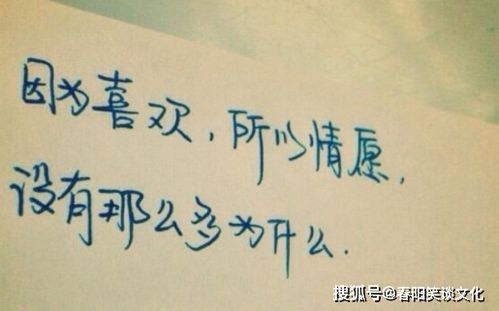 因为喜欢，所以情愿，
没有那么多为什么.
搜狐号@春阳笑谈文化